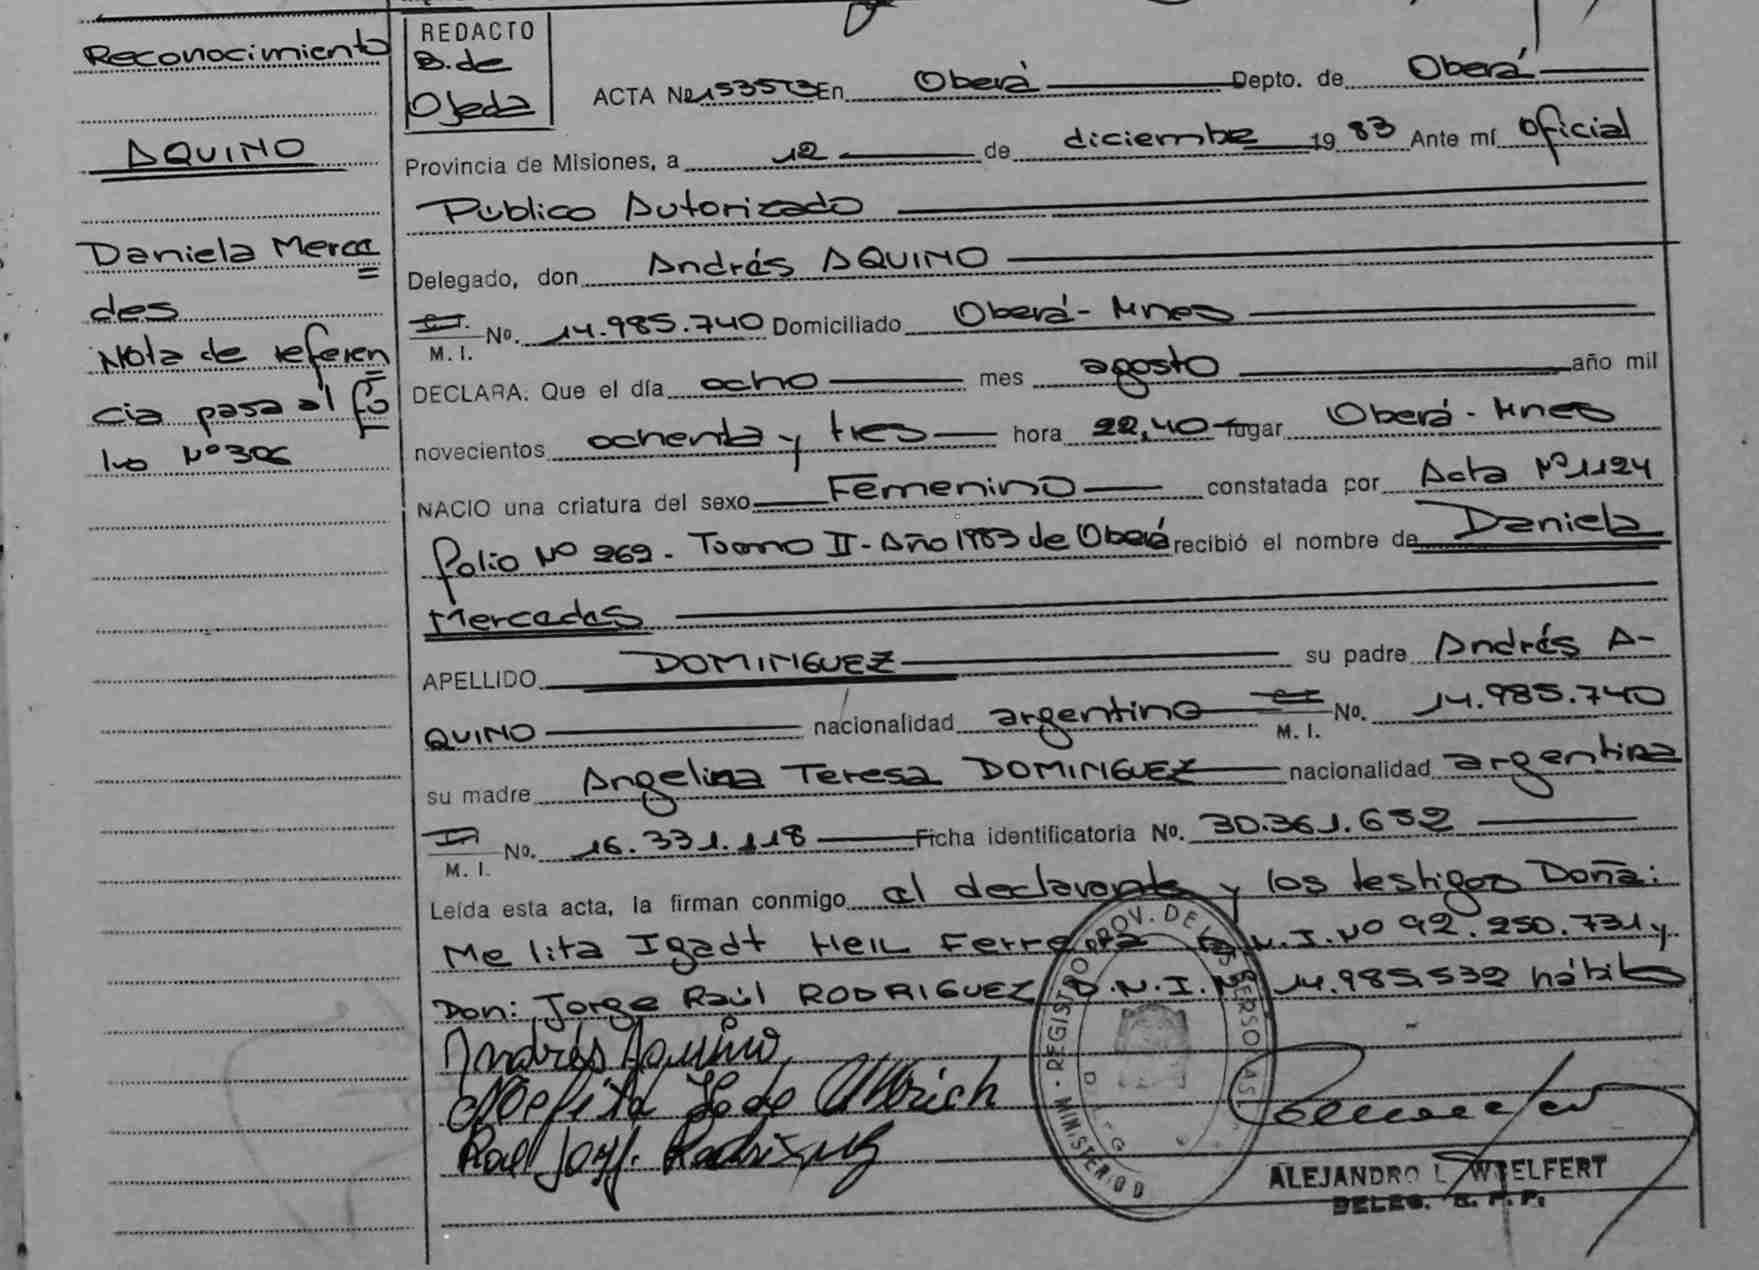 Reconocimiento
AQUINO
Daniela Merce
des
Nota de referen
cia pasa al fo
lio Nº 306
REDACTO
B. de
Ojeda
ACTA Nº 1535T3 En Oberá Depto. de Oberá
Provincia de Misiones, a 12 de diciembre 1983 Ante mí oficial
Público Autorizado
Delegado, don Andrés AQUINO
M. I. No. 14.985.740 Domiciliado Oberá - Mnes
DECLARA: Que el día ocho mes agosto año mil
novecientos ochenta y tres hora 22,40 lugar Oberá - Mnes
NACIO una criatura del sexo Femenino constatada por Acta Nº 1124
folio Nº 269 - Tomo II - Año 1983 de Oberá recibió el nombre de Daniela
Mercedes
APELLIDO DOMINGUEZ su padre Andrés A-
QUINO nacionalidad argentino M. I. No. 14.985.740
su madre Angelina Teresa DOMINGUEZ nacionalidad argentina
M. I. No. 16.331.118 Ficha identificatoria No. 30.361.652
Leída esta acta, la firman conmigo el declarante y los testigos Doña:
Melita Igadt Heil Ferreyra D.N.I. Nº 92.250.731 y
Don: Jorge Raúl RODRIGUEZ D.N.I. Nº 14.985.532 hábiles
Andrés Aquino
REGISTRO PROV. DE LAS PERSONAS
MINISTERIO D
ALEJANDRO L WELFERT
DELEG. R. P. P.